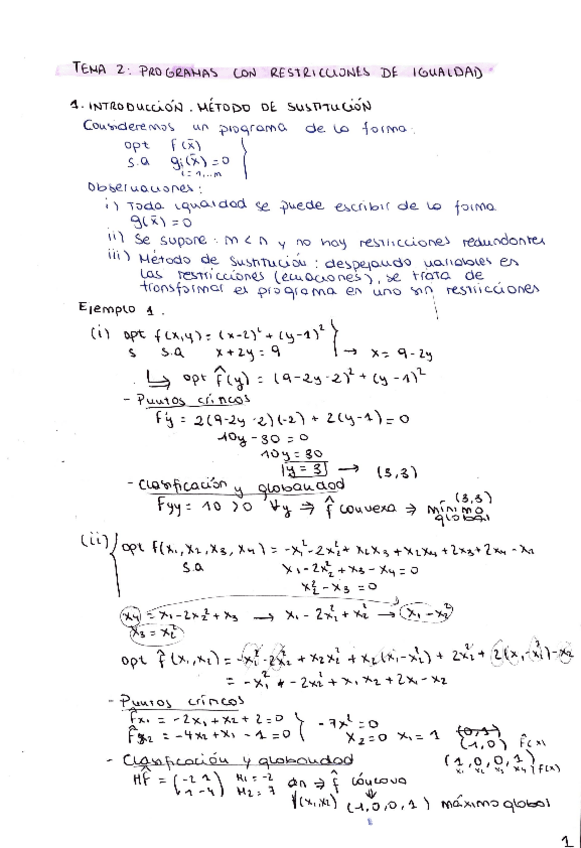 TEMA 2: PROGRAMAS CON RESTRICCIONES DE IGUALDAD
1. INTRODUCCIÓN. MÉTODO DE SUSTITUCIÓN
Consideremos un programa de la forma:
opt f(x̄)
s.a gi(x̄)=0
i=1,...m
Observaciones:
i) Toda igualdad se puede escribir de la forma
g(x̄)=0
ii) Se supone: m<n y no hay restricciones redundantes
iii) Método de sustitución: despejando variables en
las restricciones (ecuaciones), se trata de
transformar el programa en uno sin restricciones
Ejemplo 1.
(i) opt f(x,y)=(x-2)²+(y-1)²
s s.a x+2y=9 → x=9-2y
↳ opt f̂(y)=(9-2y-2)²+(y-1)²
- Puntos críticos
f'y = 2(9-2y-2)(-2)+2(y-1)=0
10y-30=0
10y=30
y=3 → (3,3)
- Clasificación y globalidad
Fyy=10>0 ∀y ⇒ f̂ convexa ⇒ (3,3) mínimo
global
(ii) opt f(x₁,x₂,x₃,x₄)=-x₁²-2x₂²+x₂x₃+x₂x₄+2x₃+2x₄-x₂
s.a x₁-2x₂²+x₃-x₄=0
x₂²-x₃=0
x₄=x₁-2x₂²+x₃ → x₁-2x₂²+x₂² → x₁-x₂²
x₃=x₂²
opt f̂(x₁,x₂)=-x₁²-2x₂²+x₂x₂²+x₂(x₁-x₂²)+2x₂²+2(x₁-x₂²)-x₂
= -x₁²+-2x₂²+x₁x₂+2x₁-x₂
- Puntos críticos
f̂x₁=-2x₁+x₂+2=0
f̂x₂=-4x₂+x₁-1=0 -7x²=0
x₂=0 x₁=1 (1,0) f̂(x)
- Clasificación y globalidad (1,0,0,1) f(x)
x₁ x₂ x₃ x₄
Hf̂=(-2 1 H₁=-2
1 -4) H₂=7 dn ⇒ f̂ cóncava
∀(x₁,x₂) (1,0,0,1) máximo global
1